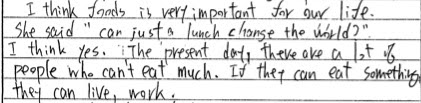 I think foods is very important for our life.
She said "can just a lunch change the world?".
I think yes. The present day, there are a lot of
people who can't eat much. If they can eat something,
they can live, work.